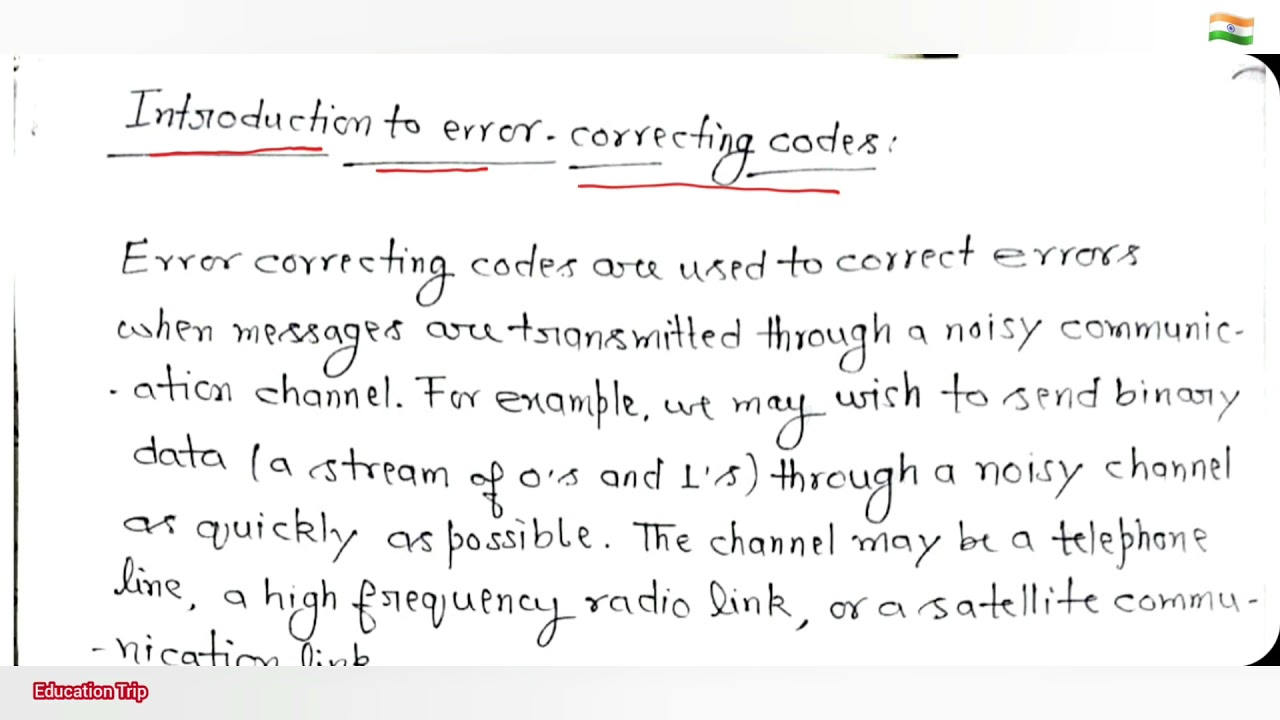 Introduction to error-correcting codes:
Error correcting codes are used to correct errors
when messages are transmitted through a noisy communic-
-ation channel. For example, we may wish to send binary
data (a stream of 0's and 1's) through a noisy channel
as quickly as possible. The channel may be a telephone
line, a high frequency radio link, or a satellite commu-
-nication link
Education Trip